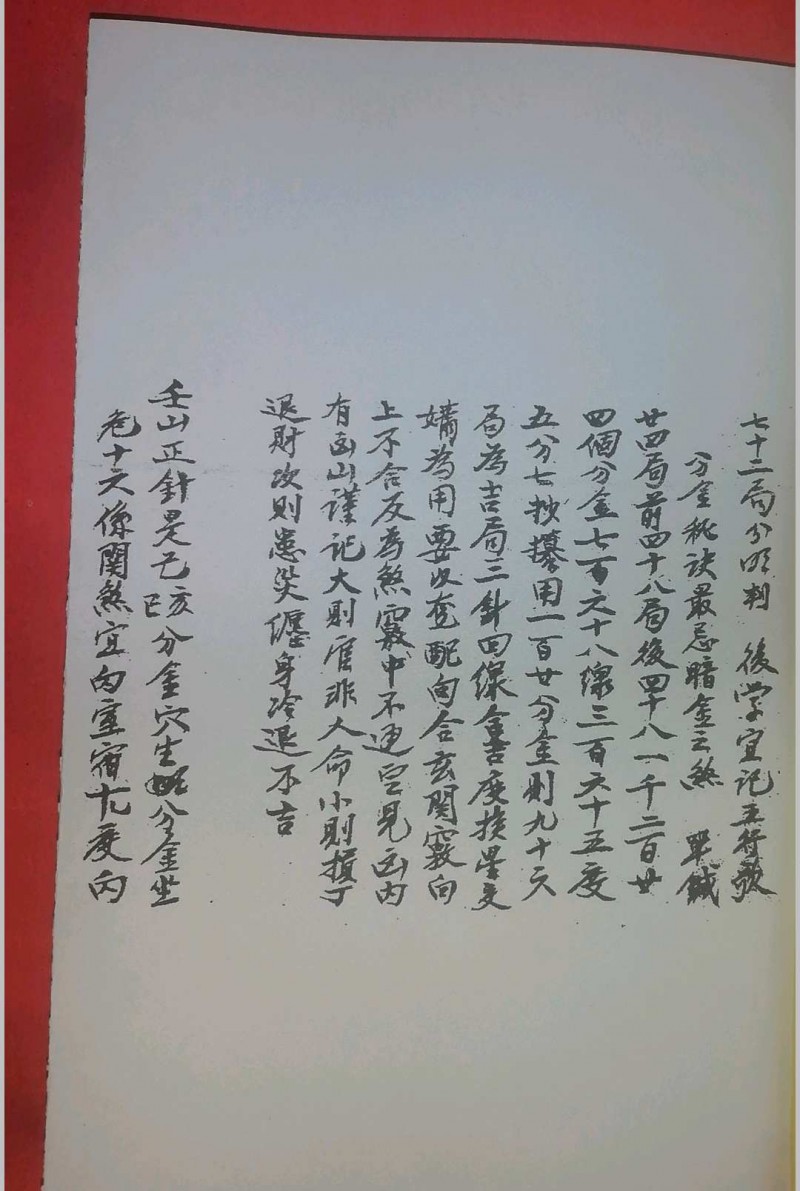 七十二局分明判　後学宜記五行歌
分金秘诀最忌暗金三煞　單鍼
廿四局前四十八局後四十八一千二百廿
四個分金七百六十八線三百六十五度
五分七抄攥用一百廿分金则九十六
局為吉局三針四線金度换星交
媾為用要收套配向合玄関竅向
上不合反為煞竅中不通空見凶内
有凶山謹記大则官非人命小则損丁
退財次则患災纏身冷退不吉
壬山正針是乙亥分金穴生分金坐
危十六係関煞宜向室宿十九度内